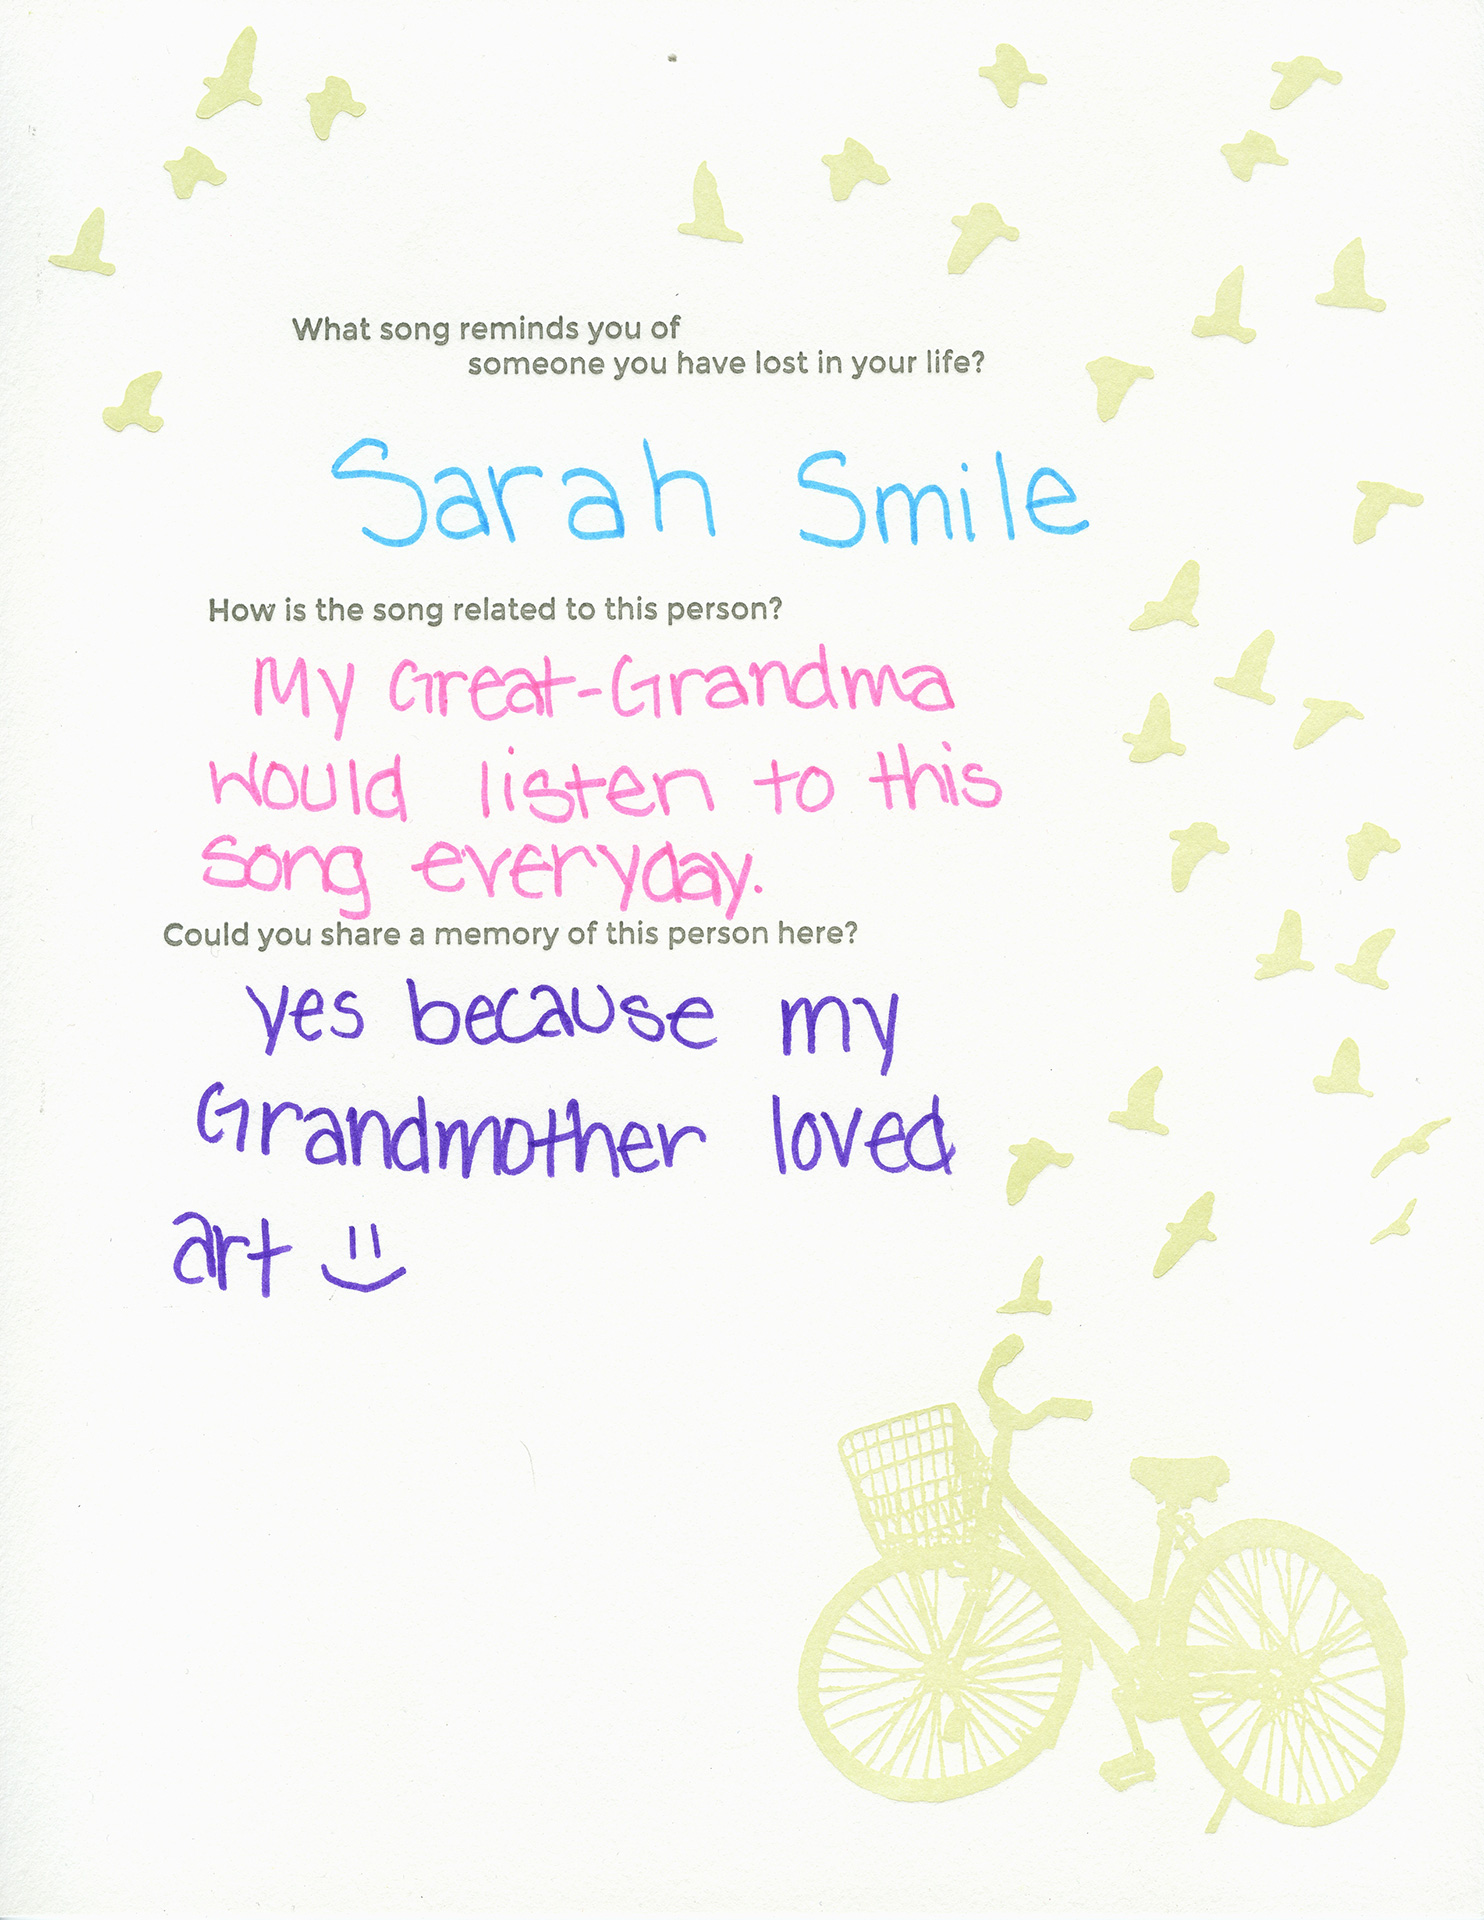 What song reminds you of
someone you have lost in your life?
Sarah Smile
How is the song related to this person?
My Great-Grandma
would listen to this
song everyday.
Could you share a memory of this person here?
yes because my
Grandmother loved
art